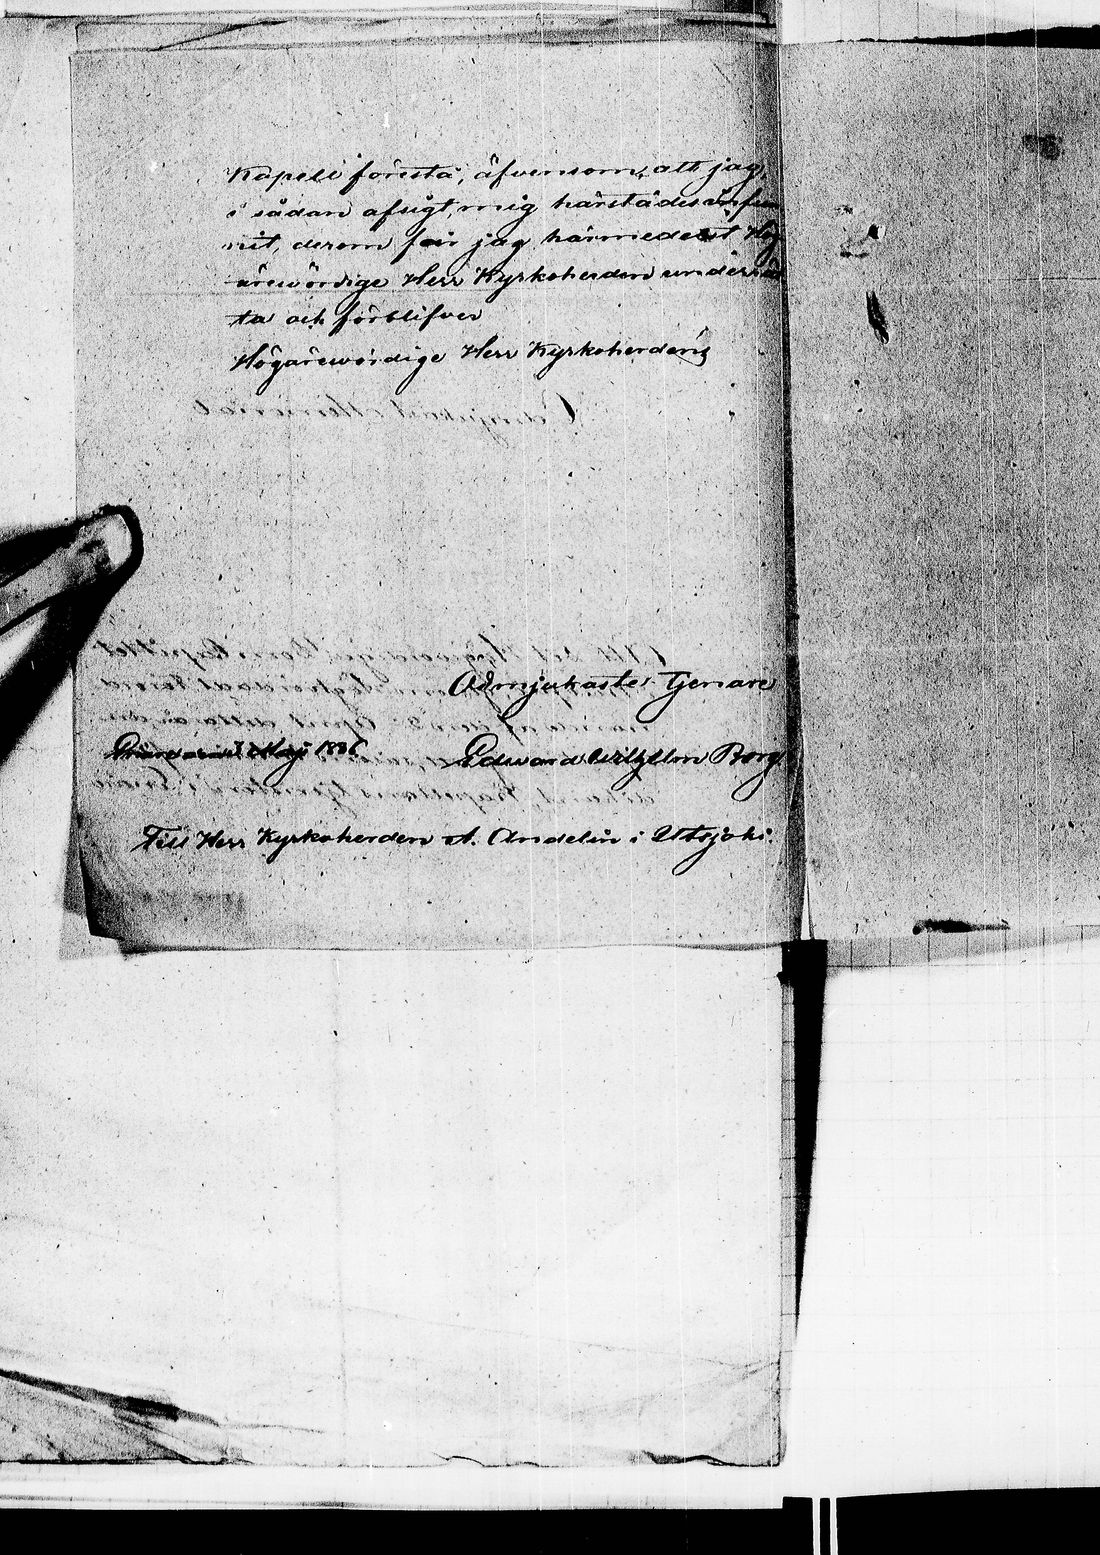 Kapell förestå, äfvensom, att jag,
i sådan afsigt, mig härstädes infun
nit, derom får jag härmedelst Hög
ärewördige Herr Kyrkoherden underrät
ta och förblifver
Högärewördige Herr Kyrkoherdens
Ödmjukaste Tjenare
Maji 1836
Edward Wilhelm Borg
Till Herr Kyrkoherden A. Andelin i Utsjoki.